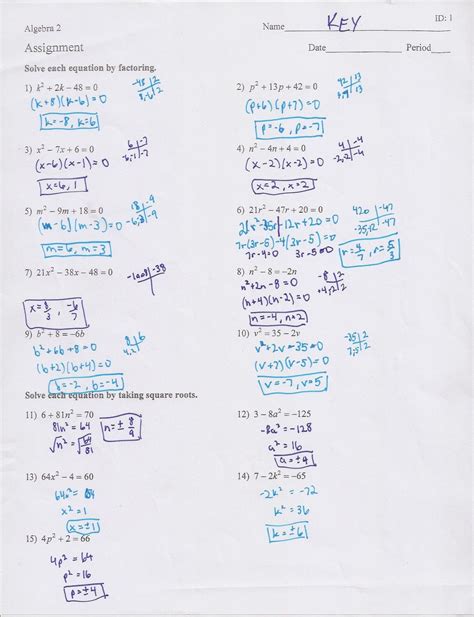 Algebra 2
Name KEY
ID: 1
Assignment
Date Period
Solve each equation by factoring.
1) k² + 2k − 48 = 0
-48 | 2
8, -6 | 2
(k+8)(k-6)=0
k=-8, k=6
2) p² + 13p + 42 = 0
42 | 13
(p+6)(p+7)=0
p=-6, p=-7
3) x² − 7x + 6 = 0
6 | -7
-6,-1 | -7
(x-6)(x-1)=0
x=6, 1
4) n² − 4n + 4 = 0
4 | -4
-2,-2 | -4
(x-2)(x-2)=0
x=2, x=2
5) m² − 9m + 18 = 0
18 | -9
-6,-3 | -9
(m-6)(m-3)=0
m=6, m=3
6) 21r² − 47r + 20 = 0
420 | -47
-35,-12 | -47
21r²-35r-12r+20=0
7r(3r-5)-4(3r-5)=0
7r-4=0 3r-5=0
r=4/7, r=5/3
7) 21x² − 38x − 48 = 0
-1008 | -38
x=8/3, -6/7
8) n² − 8 = −2n
-8 | 2
+4,-2 | 2
n²+2n-8=0
(n+4)(n-2)=0
n=-4, n=2
9) b² + 8 = −6b
8 | 6
4,2 |
b²+6b+8=0
(b+2)(b+4)=0
b=-2, b=-4
10) v² = 35 − 2v
-35 | 2
7,-5 | 2
v²+2v-35=0
(v+7)(v-5)=0
v=-7, v=5
Solve each equation by taking square roots.
11) 6 + 81n² = 70
81n²=64
√n²=√64/81
n=± 8/9
12) 3 − 8a² = −125
-8a²=-128
a²=16
a=±4
13) 64x² − 4 = 60
64x²=64
x²=1
x=±1
14) 7 − 2k² = −65
-2k²=-72
k²=36
k=±6
15) 4p² + 2 = 66
4p²=64
p²=16
p=±4